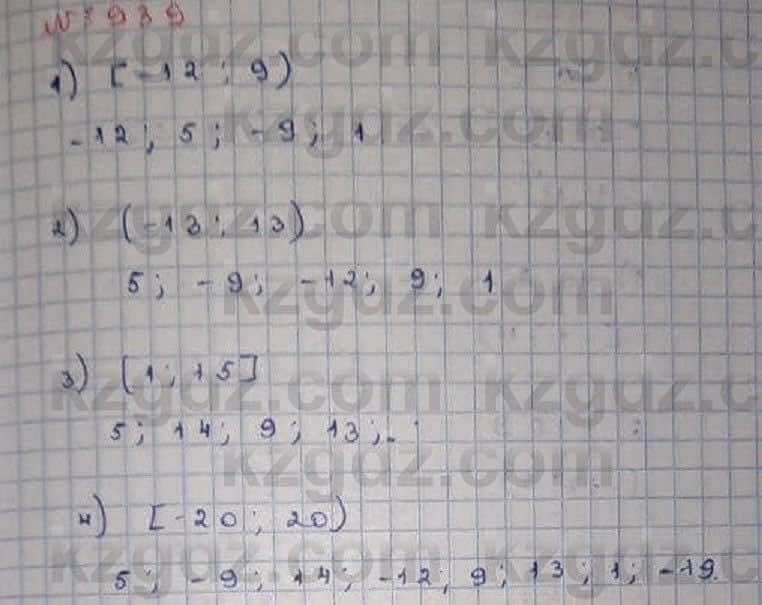 № 939
1) [-12; 9)
-12; 5; -9; 1
2) (-13; 13)
5; -9; -12; 9; 1
3) [1; 15]
5; 14; 9; 13;
4) [-20; 20)
5; -9; 14; -12; 9; 13; 1; -19.
kzgdz.com kzgdz.com
kzgdz.com
kzgdz.com kzgdz.com
kzgdz.com
kzgdz.com kzgdz.com
kzgdz.com
kzgdz.com kzgdz.com